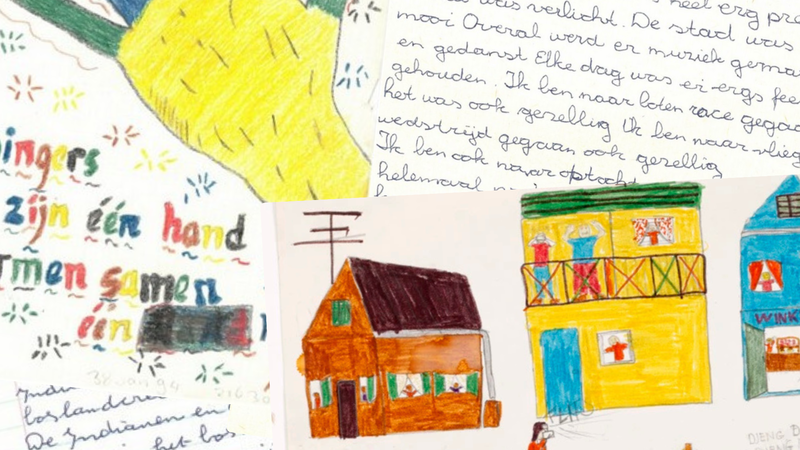 was verlicht. De stad was
mooi Overal werd er muziek gema
en gedanst Elke dag was er ergs fee
gehouden. Ik ben naar boten race gegaa
het was ook gezellig Ik ben naar vlieg
wedstrijd gegaan ook gezellig
Ik ben ook naar optocht
helemaal
ingers
zijn één hand
rmen samen
één
38 van 94
Indi
boslander
De Indianen en
het bos
WINK
DJENG D